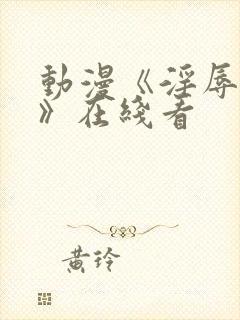 動漫《淫辱
》在綫看
黃玲